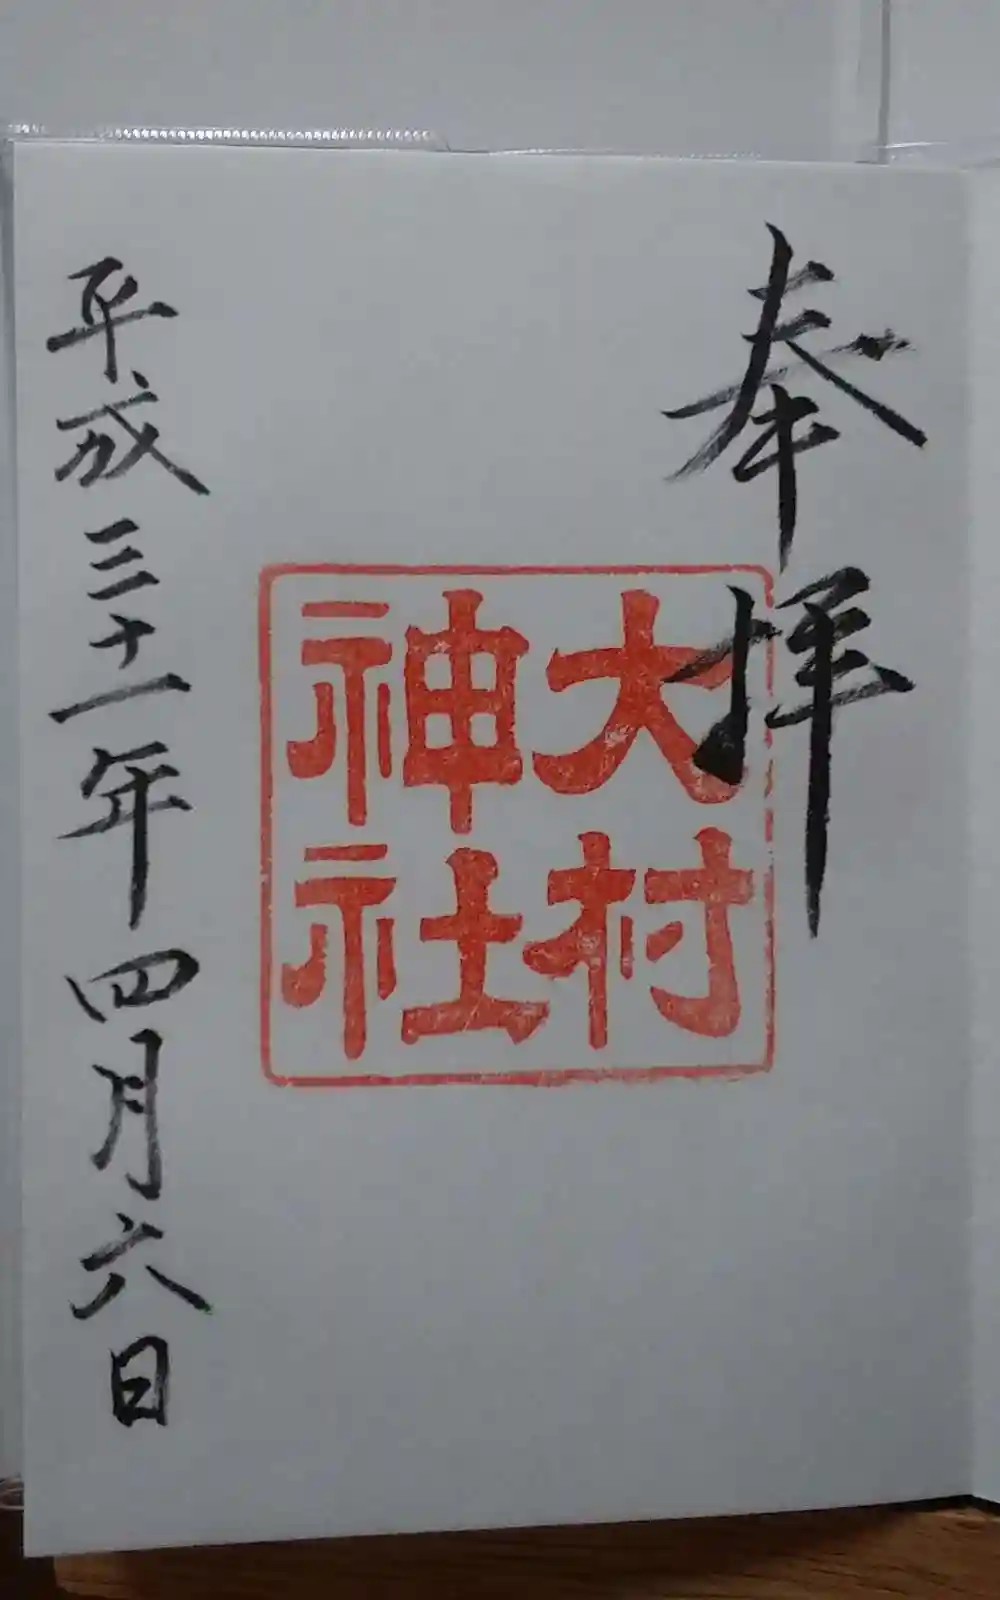 奉拝
大村
神社
平成三十一年四月六日